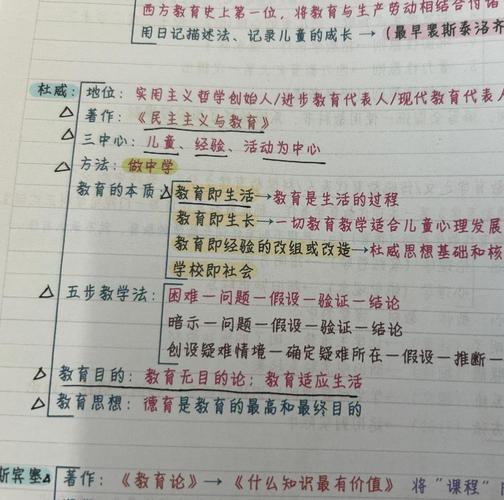 西方教育史上第一位，将教育与生产劳动相结合付诸
用日记描述法、记录儿童的成长→（最早裴斯泰洛齐
杜威：地位：实用主义哲学创始人/进步教育代表人/现代教育代表人
△ 著作：《民主主义与教育》
△ 三中心：儿童、经验、活动为中心
△ 方法：做中学
教育的本质△教育即生活→教育是生活的过程
教育即生长→一切教育教学适合儿童心理发展
教育即经验的改组或改造→杜威思想基础和核
学校即社会
△ 五步教学法：困难—问题—假设—验证—结论
暗示—问题—假设—验证—结论
创设疑难情境—确定疑难所在—假设—推断—
△ 教育目的：教育无目的论；教育适应生活
△ 教育思想：德育是教育的最高和最终目的
斯宾塞△著作：《教育论》→《什么知识最有价值》 将“课程”